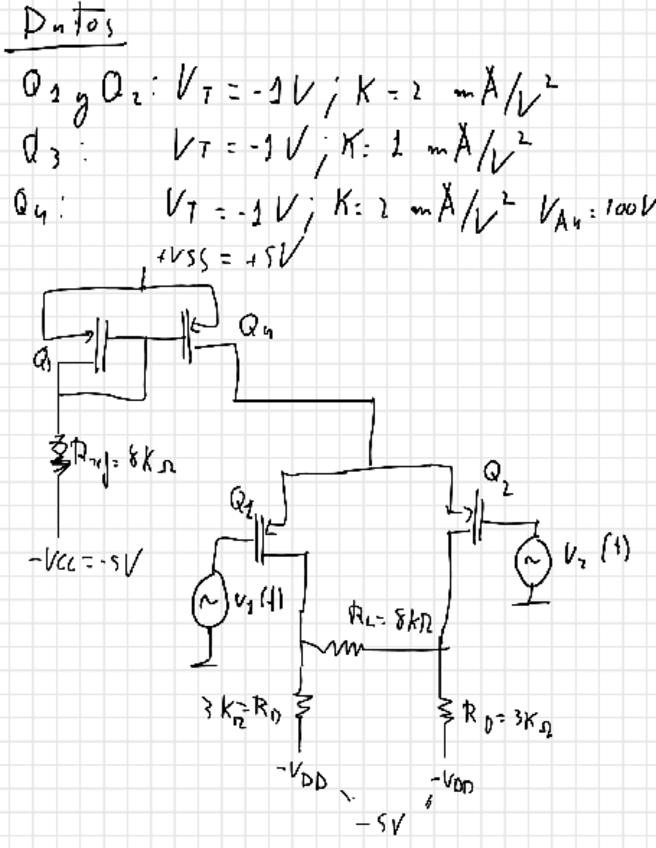 Datos
Q1 y Q2: VT = -1V ; K = 2 mA/V²
Q3: VT = -1V ; K: 1 mA/V²
Q4: VT = -1V ; K: 2 mA/V² VA4: 100V
+VSS = +5V
Q4
Rref = 8KΩ
-VCC = -5V
Q1
Q2
v1(t)
v2(t)
RL = 8KΩ
3KΩ = RD
RD = 3KΩ
-VDD
-VDD
-5V